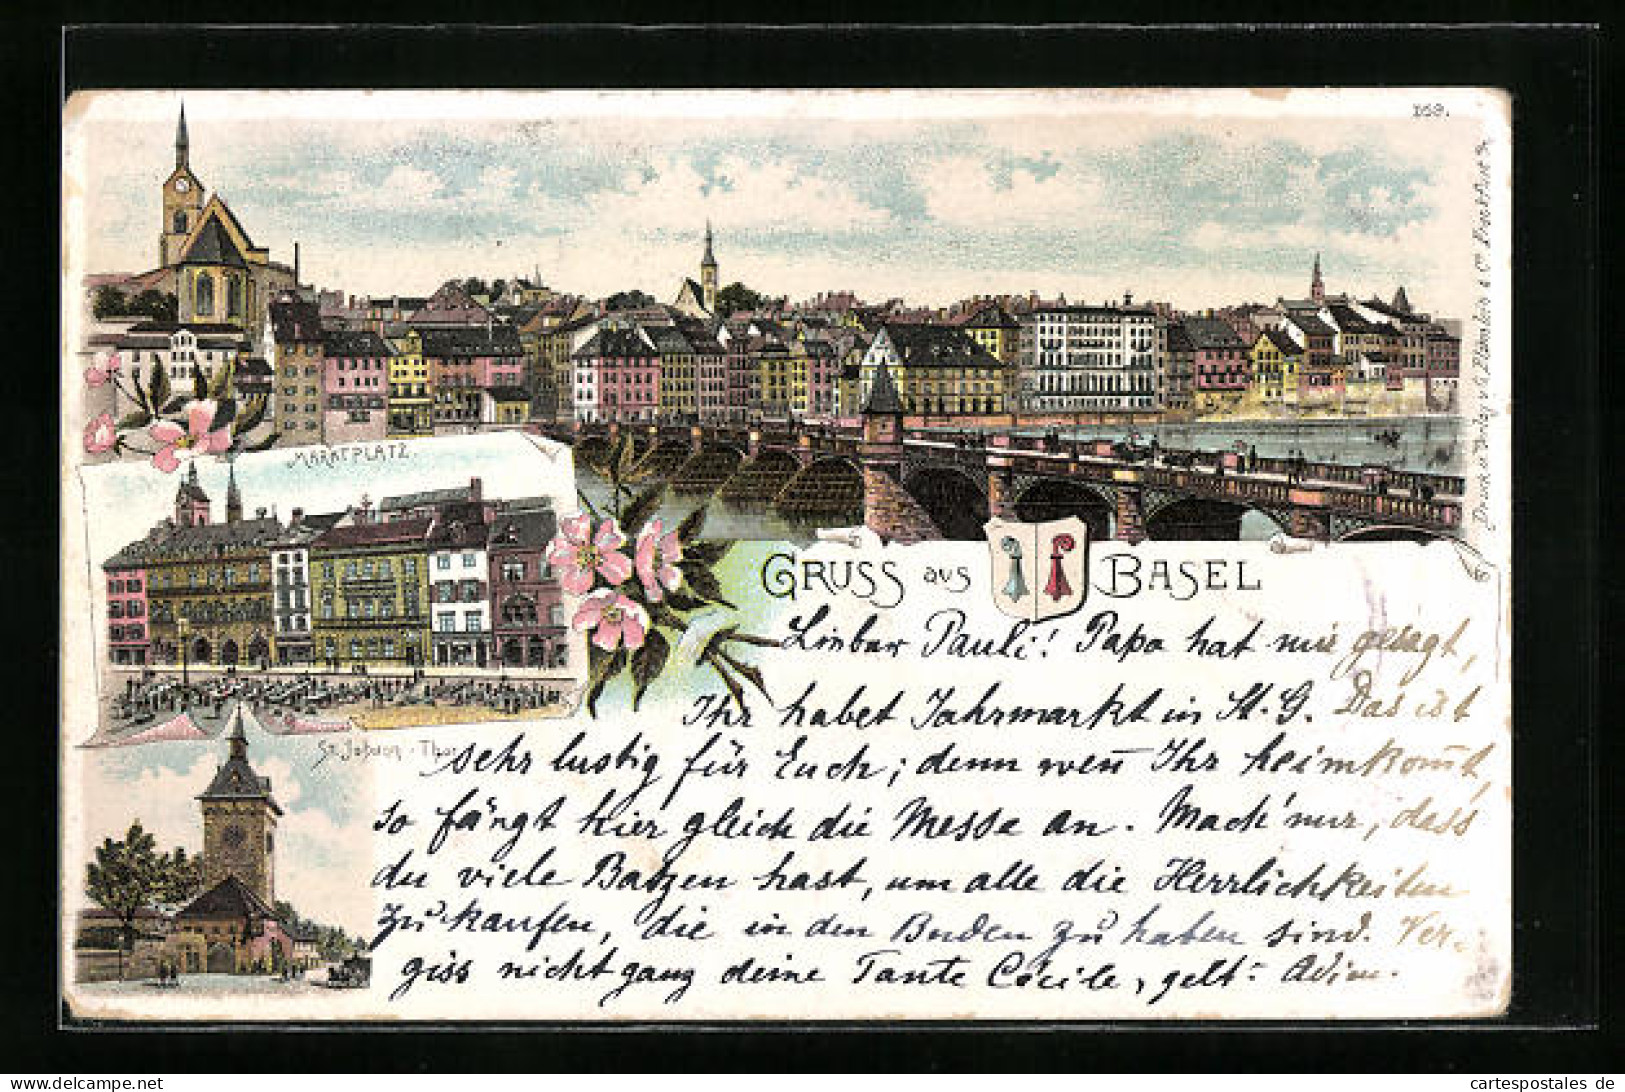 D59.
Druck u. Verlag v. G. Blümlein & Co. Frankfurt a. M.
MARKTPLATZ
GRUSS aus BASEL
St. Johann-Thor
Lieber Pauli! Papa hat mir gesagt,
Ihr habet Jahrmarkt in St. G. Das ist
sehr lustig für Euch; denn weñ Ihr heimkom̃t,
so fängt hier gleich die Messe an. Mach' nur, dass
du viele Batzen hast, um alle die Herrlichkeiten
zu kaufen, die in den Buden zu haben sind. Ver-
giss nicht ganz deine Tante Cécile, gelt? Adieu.
cartespostales de
www.cartespostales.com